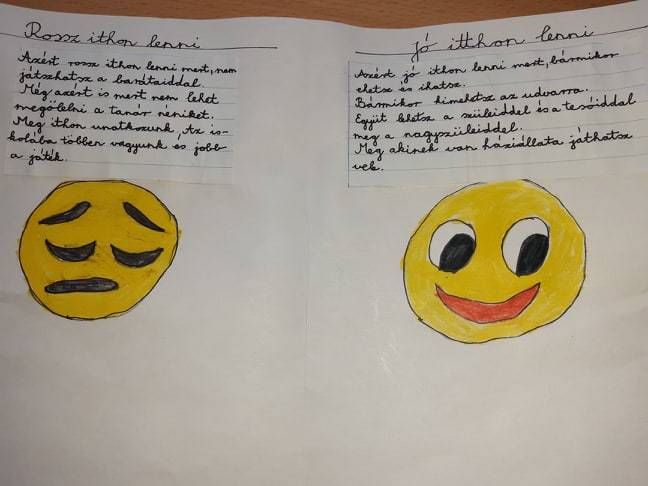 Rossz ithon lenni
Azért rossz ithon lenni mert, nem
játszhatsz a barátaiddal.
Még azért is mert nem lehet
megölelni a tanár néniket.
Meg ithon unatkozunk, Az is-
kolába többen vagyunk és jobb
a játék.
Jó itthon lenni
Azért jó ithon lenni mert, bármikor
ehetsz és ihatsz.
Bármikor kimehetsz az udvarra.
Együt lehetsz a szüleiddel és a tesóiddal
meg a nagyszüleiddel.
Meg akinek van háziállata játhatsz
velk.